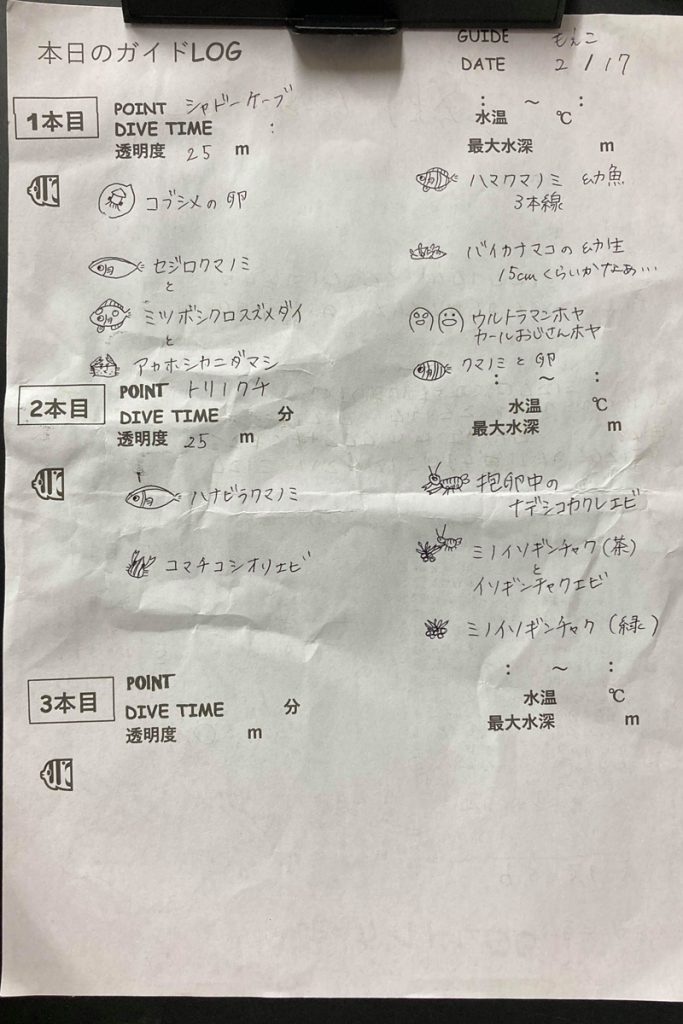 本日のガイドLOG
GUIDE もえこ
DATE 2 / 17
1本目
POINT シャドーケーブ
DIVE TIME :
透明度 25 m
: ~ :
水温 ℃
最大水深 m
コブシメの卵
セジロクマノミ
と
ミツボシクロスズメダイ
と
アカホシカニダマシ
ハマクマノミ 幼魚
3本線
バイカナマコの幼生
15cmくらいかなぁ…
ウルトラマンホヤ
カールおじさんホヤ
クマノミと卵
2本目
POINT トリノクチ
DIVE TIME 分
透明度 25 m
: ~ :
水温 ℃
最大水深 m
ハナビラクマノミ
コマチコシオリエビ
抱卵中の
ナデシコカクレエビ
ミノイソギンチャク(茶)
と
イソギンチャクエビ
ミノイソギンチャク(緑)
3本目
POINT
DIVE TIME 分
透明度 m
: ~ :
水温 ℃
最大水深 m